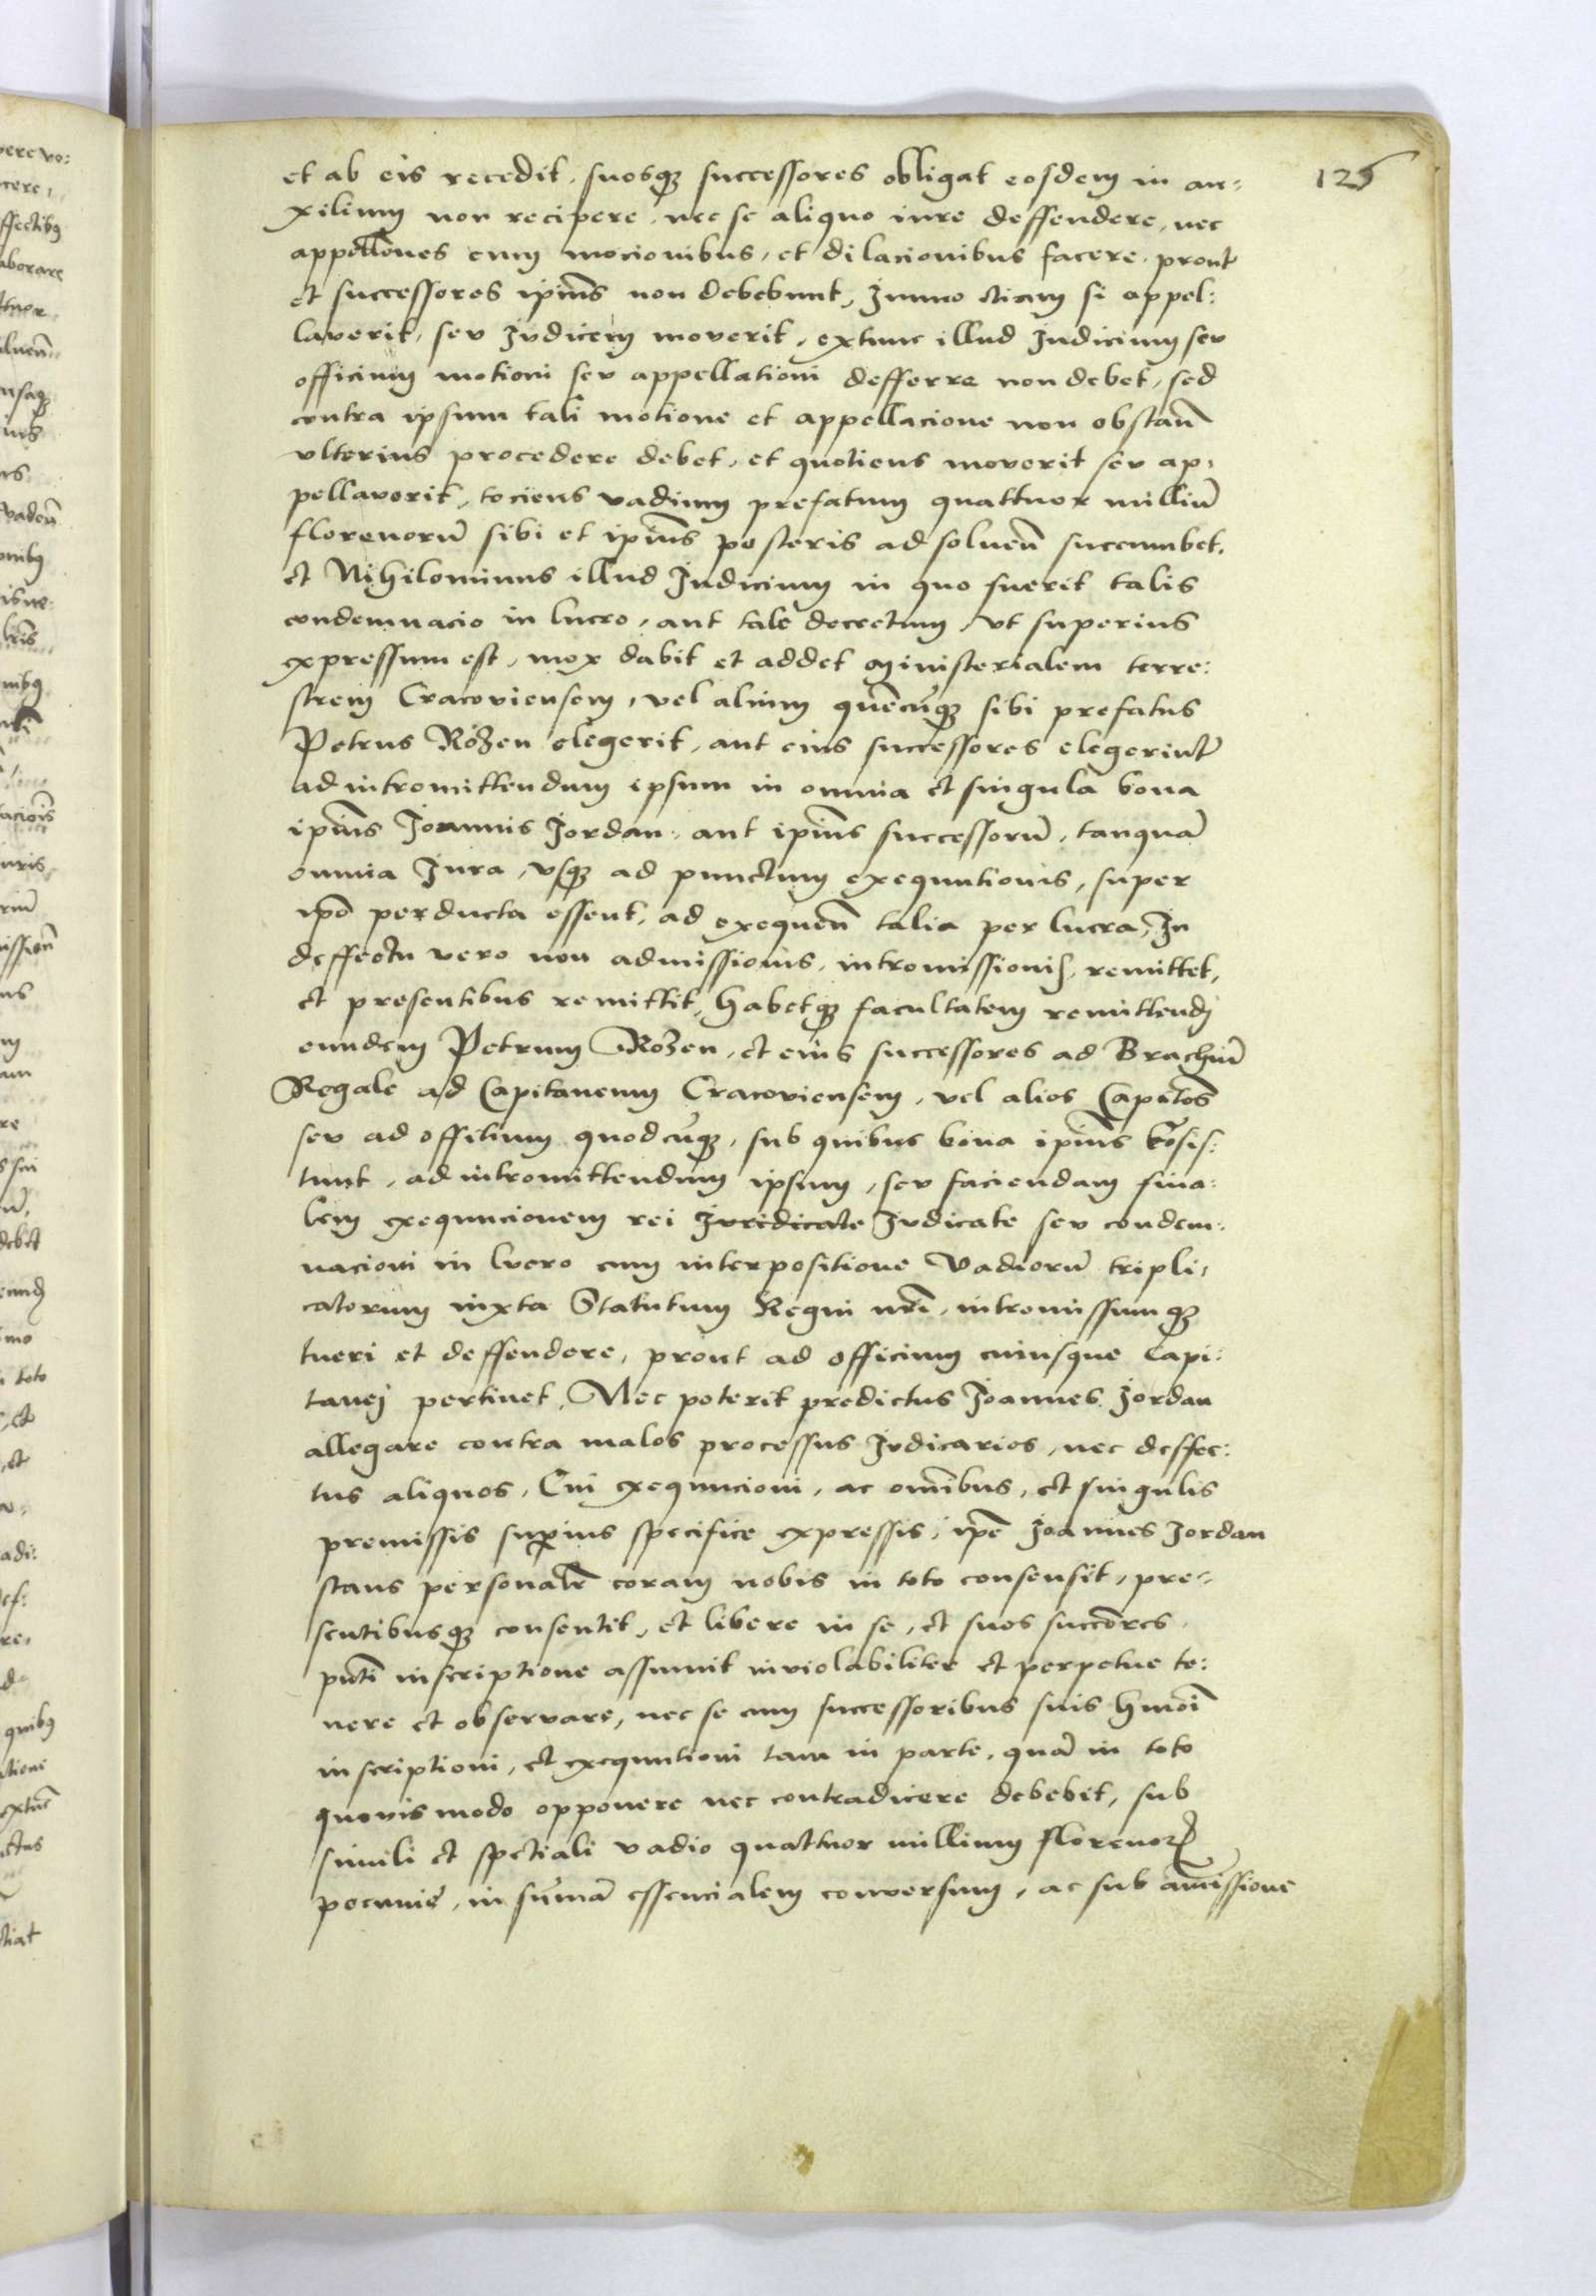 125
et ab eis recedit, suosq; successores obligat eosdem in au:
xilium non recipere, nec se aliquo iure deffendere, nec
appellōnes cum mocionibus, et dilacionibus facere, prout
et successores ipīus non debebunt, Immo etiam si appel:
laverit, sev Jvdicem moverit, extunc illud Judicium sev
officium motioni sev appellationi defferre non debet, sed
contra ipsum tali motione et appellacione non obstañ
vlterius procedere debet, et quotiens moverit sev ap:
pellaverit, tociens vadium prefatum quattuor milliū
florenorū sibi et ipīus posteris ad solueñ succumbet,
et Nihilominus illud Judicium in quo fuerit talis
condemnacio in lucro, aut tale decretum, vt superius
expressum est, mox dabit et addet ministerialem terre:
strem Cracoviensem, vel alium quēcūq; sibi prefatus
Petrus Rózen elegerit, aut eius successores elegerint
ad intromittendum ipsum in omnia et singula bona
ipīus Joannis Jordan, aut ipīus successorū, tanquā
omnia Jura, vsq; ad punctum exequutionis, super
ip̄o perducta essent, ad exequeñ talia per lucra, In
deffectu vero non admissionis, intromissionis, remittet,
et presentibus remittit, habetq; facultatem remittendj
eundem Petrum Rózen, et eius successores ad Brachiū
Regale ad Capitaneum Cracoviensem, vel alios Capitōs
sev ad offitium quodcūq;, sub quibus bona ipīus cōsis:
tunt, ad intromittendum ipsum, sev faciendam fina:
lem exequucionem rei Jvridicate Jvdicate sev condem:
nacioni in lvcro cum interpositione Vadiorū tripli:
catorum iuxta Statutum Regni nr̄i, intromissumq;
tueri et deffendere, prout ad officium cuiusque Capi:
tanej pertinet, Nec poterit predictus Joannes Jordan
allegare contra malos processus Jvdicarios, nec deffec:
tus aliquos, Cui exequucioni, ac om̄ibus, et singulis
premissis superius specifice expressis, ip̄e Joannes Jordan
stans personal̄r coram nobis in toto consensit, pre:
sentibusq; consentit, et libere in se, et suos succōres
pn̄ti inscriptione assumit inviolabiliter et perpetue te:
nere et observare, nec se cum successoribus suis hmōi
inscriptioni, et exequutioni tam in parte, quā in toto
quovismodo opponere nec contradicere debebit, sub
simili et spetiali vadio quattuor millium florenoꝝ
pecunie, in sūmā essencialem conversum, ac sub amissione